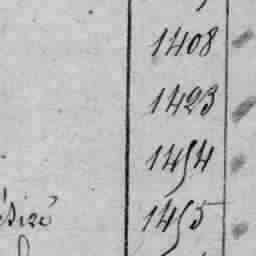 1408
1423
1454
1455